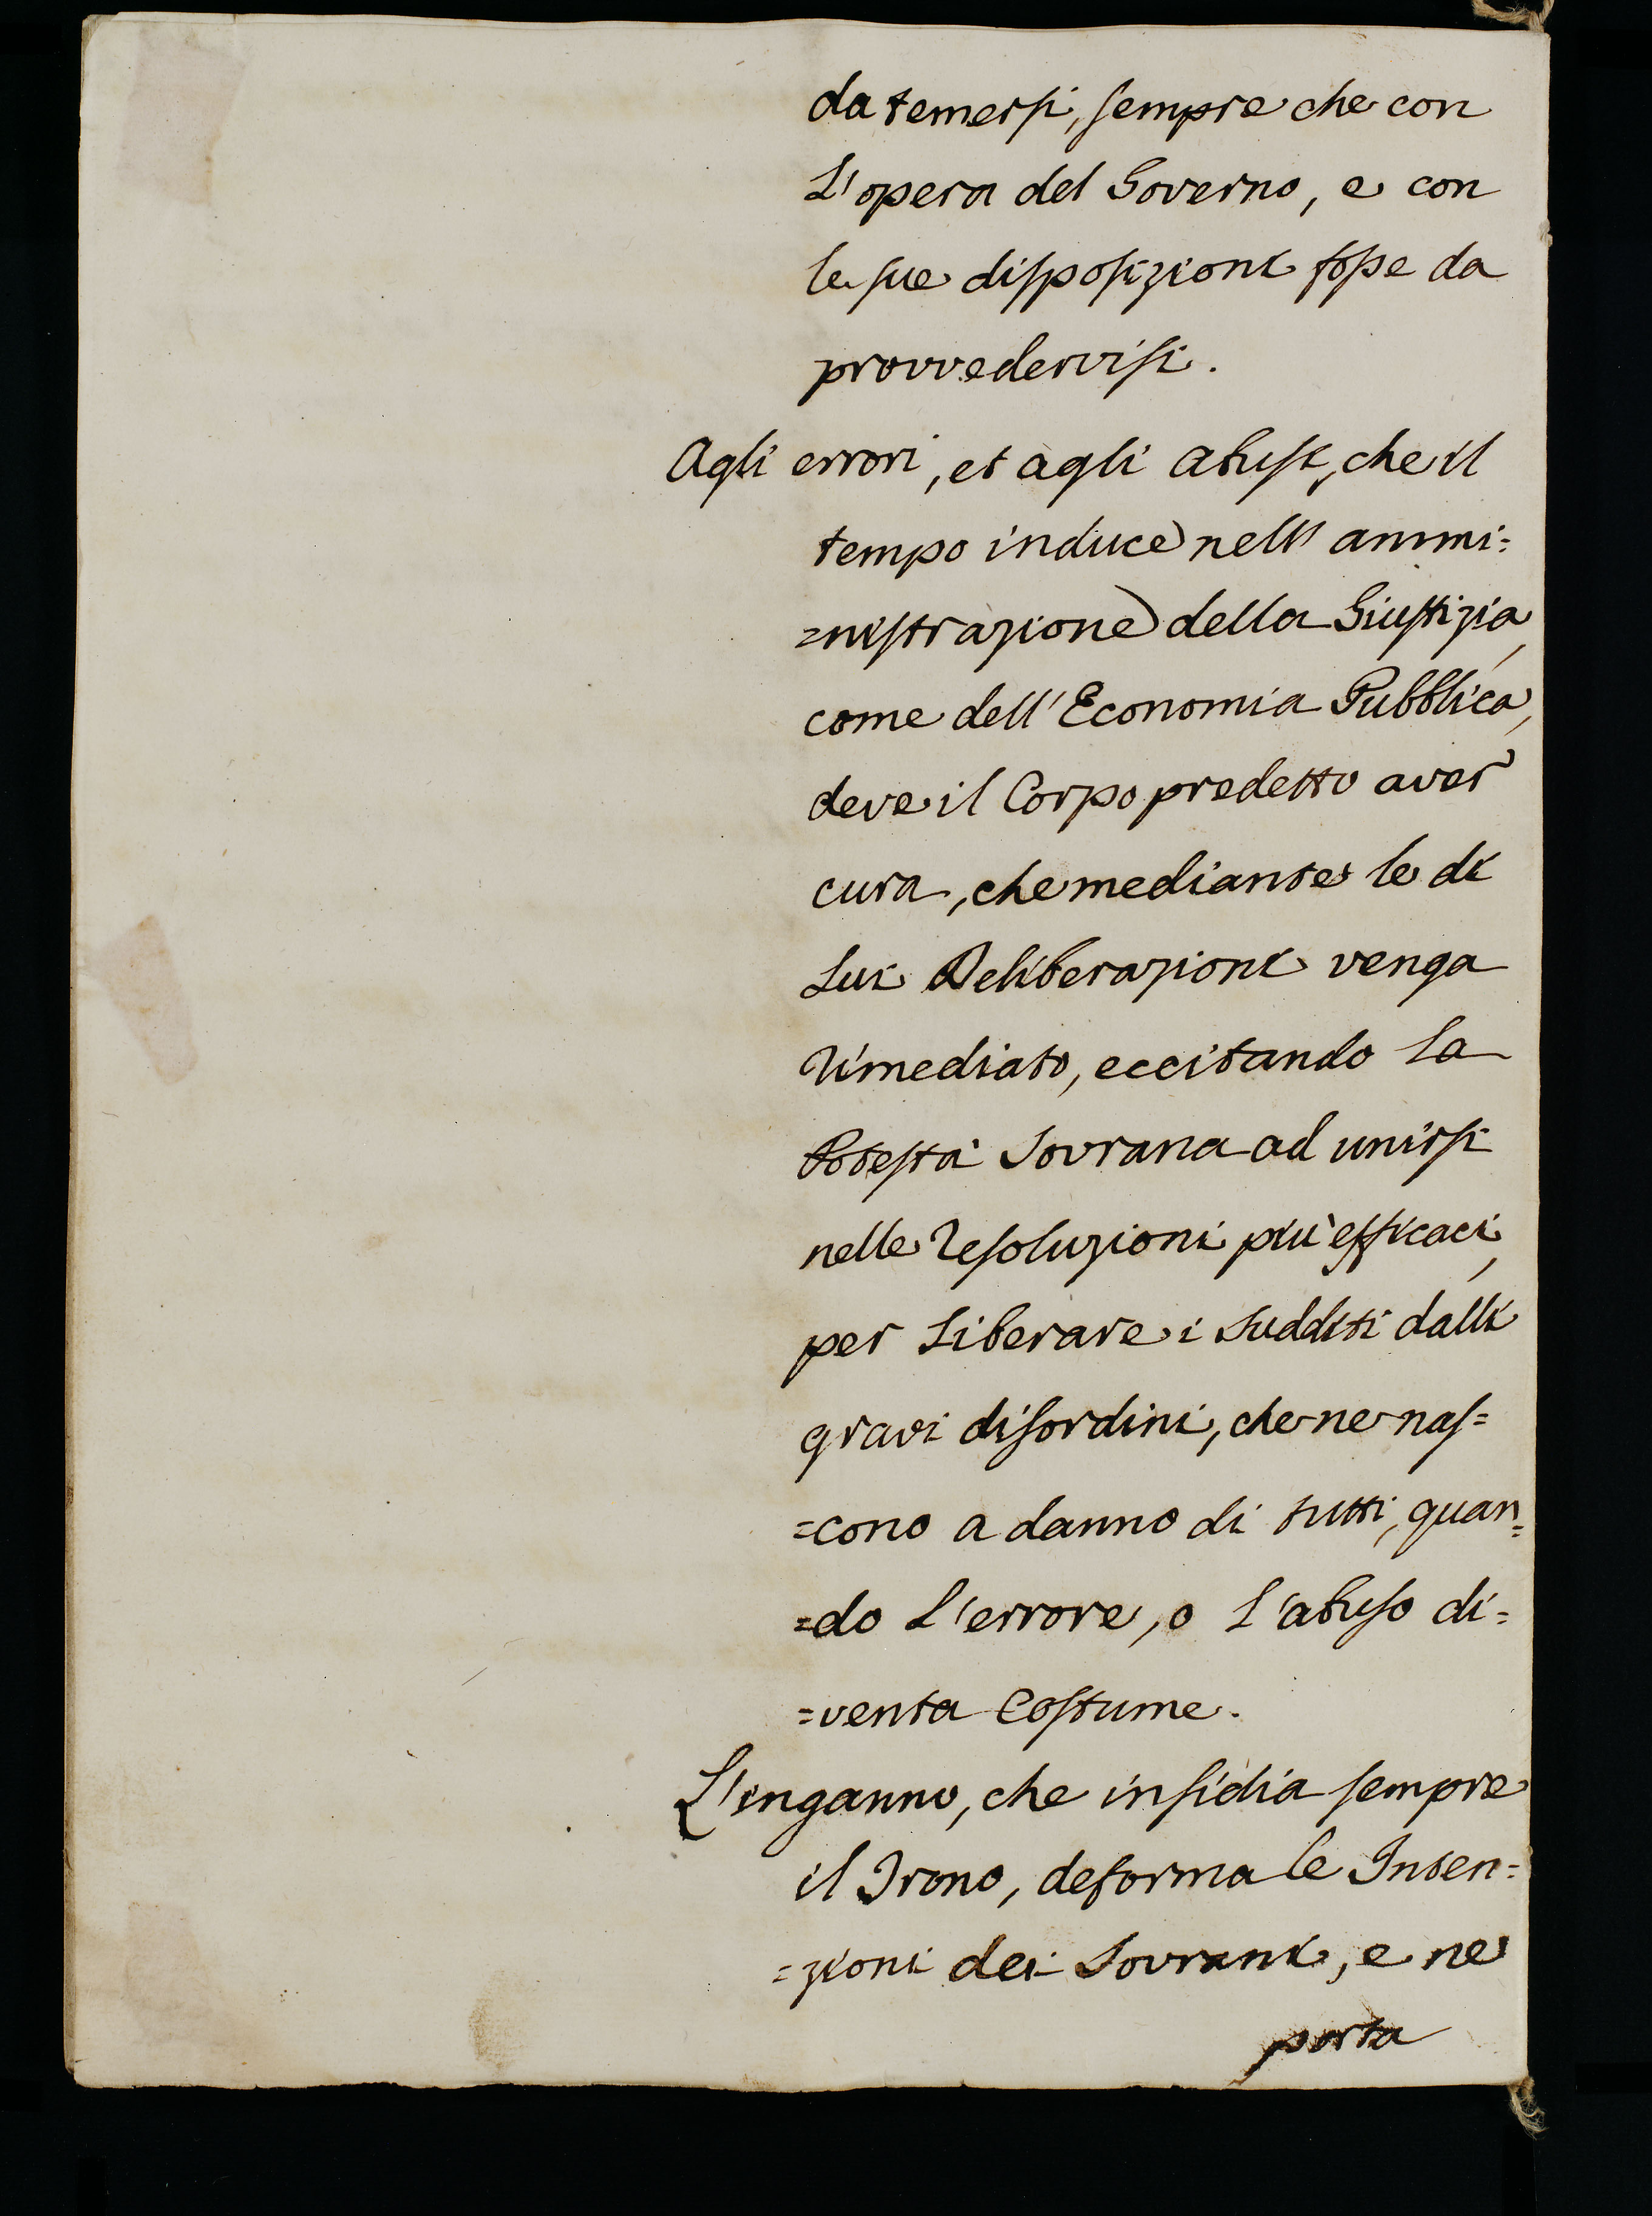 da temersi, sempre che con
L'opera del Governo, e con
le sue disposizioni fosse da
provvedervisi.
Agli errori, et agli abusi, che il
tempo induce nell' ammi=
=nistrazione della Giustizia,
come dell' Economia Pubblica,
deve il Corpo predetto aver
cura, che mediante le di
Lui Deliberazioni venga
rimediato, eccitando la
Potestà Sovrana ad unirsi
nelle resoluzioni più efficaci,
per Liberare i sudditi dalli
gravi disordini, che ne nas=
=cono a danno di tutti, quan=
=do L'errore, o L'abuso di=
=venta Costume.
L'inganno, che insidia sempre
il Trono, deforma le Inten=
=zioni dei Sovrani, e ne
porta